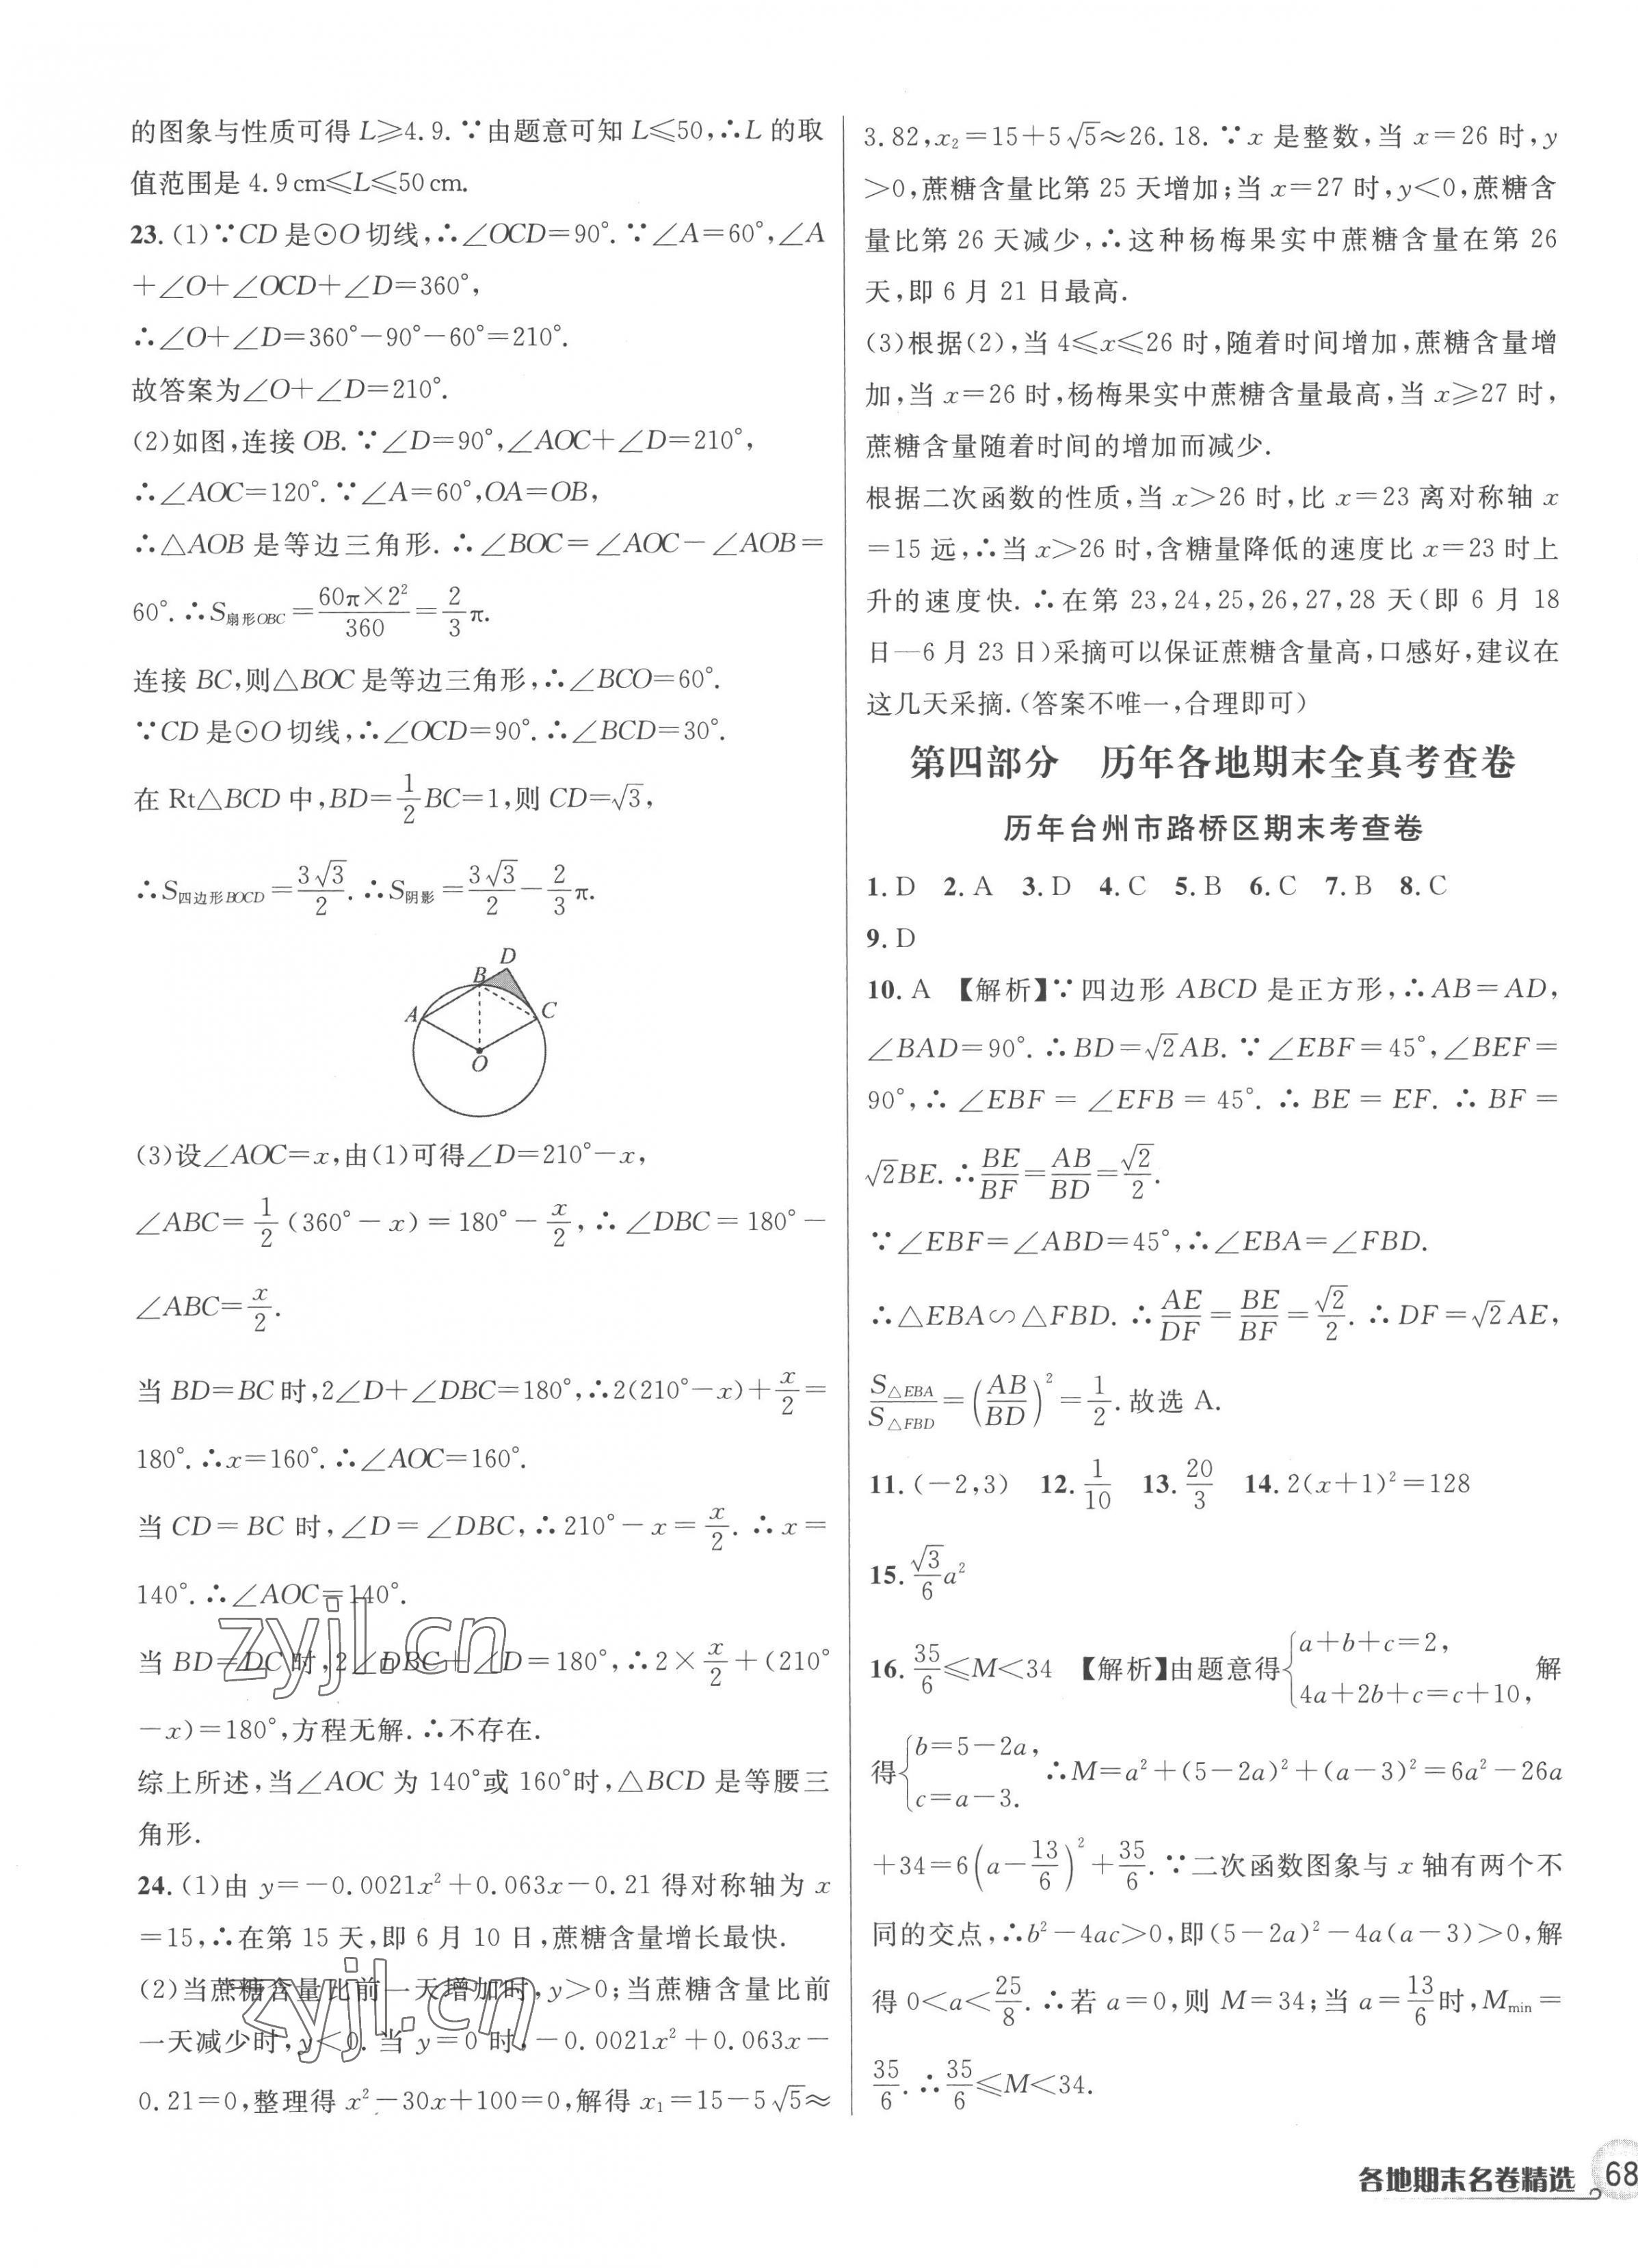 的图象与性质可得 L≥4.9.∵由题意可知 L≤50,∴L 的取
值范围是 4.9 cm≤L≤50 cm.
23.(1)∵CD 是⊙O 切线,∴∠OCD=90°.∵∠A=60°,∠A
+∠O+∠OCD+∠D=360°,
∴∠O+∠D=360°-90°-60°=210°.
故答案为∠O+∠D=210°.
(2)如图,连接 OB.∵∠D=90°,∠AOC+∠D=210°,
∴∠AOC=120°.∵∠A=60°,OA=OB,
∴△AOB 是等边三角形.∴∠BOC=∠AOC-∠AOB=
60°.∴S扇形OBC=60π×2²/360=2/3π.
连接 BC,则△BOC 是等边三角形,∴∠BCO=60°.
∵CD 是⊙O 切线,∴∠OCD=90°.∴∠BCD=30°.
在 Rt△BCD 中,BD=1/2BC=1,则 CD=√3,
∴S四边形BOCD=3√3/2.∴S阴影=3√3/2-2/3π.
D
B
A
C
O
(3)设∠AOC=x,由(1)可得∠D=210°-x,
∠ABC=1/2(360°-x)=180°-x/2,∴∠DBC=180°-
∠ABC=x/2.
当 BD=BC 时,2∠D+∠DBC=180°,∴2(210°-x)+x/2=
180°.∴x=160°.∴∠AOC=160°.
当 CD=BC 时,∠D=∠DBC,∴210°-x=x/2.∴x=
140°.∴∠AOC=140°.
zyjl.cn
当 BD=DC 时,2∠DBC+∠D=180°,∴2×x/2+(210°
-x)=180°,方程无解.∴不存在.
综上所述,当∠AOC 为 140°或 160°时,△BCD 是等腰三
角形.
24.(1)由 y=-0.0021x²+0.063x-0.21 得对称轴为 x
=15,∴在第 15 天,即 6 月 10 日,蔗糖含量增长最快.
(2)当蔗糖含量比前一天增加时,y>0;当蔗糖含量比前
zyjl.cn
一天减少时,y<0.当 y=0 时,-0.0021x²+0.063x-
0.21=0,整理得 x²-30x+100=0,解得 x₁=15-5√5≈
3.82,x₂=15+5√5≈26.18.∵x 是整数,当 x=26 时,y
>0,蔗糖含量比第 25 天增加;当 x=27 时,y<0,蔗糖含
量比第 26 天减少,∴这种杨梅果实中蔗糖含量在第 26
天,即 6 月 21 日最高.
(3)根据(2),当 4≤x≤26 时,随着时间增加,蔗糖含量增
加,当 x=26 时,杨梅果实中蔗糖含量最高,当 x≥27 时,
蔗糖含量随着时间的增加而减少.
根据二次函数的性质,当 x>26 时,比 x=23 离对称轴 x
=15 远,∴当 x>26 时,含糖量降低的速度比 x=23 时上
升的速度快.∴在第 23,24,25,26,27,28 天(即 6 月 18
日—6 月 23 日)采摘可以保证蔗糖含量高,口感好,建议在
这几天采摘.(答案不唯一,合理即可)
第四部分 历年各地期末全真考查卷
历年台州市路桥区期末考查卷
1.D 2.A 3.D 4.C 5.B 6.C 7.B 8.C
9.D
10.A 【解析】∵四边形 ABCD 是正方形,∴AB=AD,
∠BAD=90°.∴BD=√2AB.∵∠EBF=45°,∠BEF=
90°,∴∠EBF=∠EFB=45°.∴BE=EF.∴BF=
√2BE.∴BE/BF=AB/BD=√2/2.
∵∠EBF=∠ABD=45°,∴∠EBA=∠FBD.
∴△EBA∽△FBD.∴AE/DF=BE/BF=√2/2.∴DF=√2AE,
S△EBA/S△FBD=(AB/BD)²=1/2.故选 A.
11.(-2,3) 12.1/10 13.20/3 14.2(x+1)²=128
15.√3/6a²
16.35/6≤M<34 【解析】由题意得{a+b+c=2, 4a+2b+c=c+10, 解
得{b=5-2a, c=a-3. ∴M=a²+(5-2a)²+(a-3)²=6a²-26a
+34=6(a-13/6)²+35/6.∵二次函数图象与 x 轴有两个不
同的交点,∴b²-4ac>0,即(5-2a)²-4a(a-3)>0,解
得 0<a<25/8.∴若 a=0,则 M=34;当 a=13/6时,Mmin=
35/6.∴35/6≤M<34.
各地期末名卷精选 68